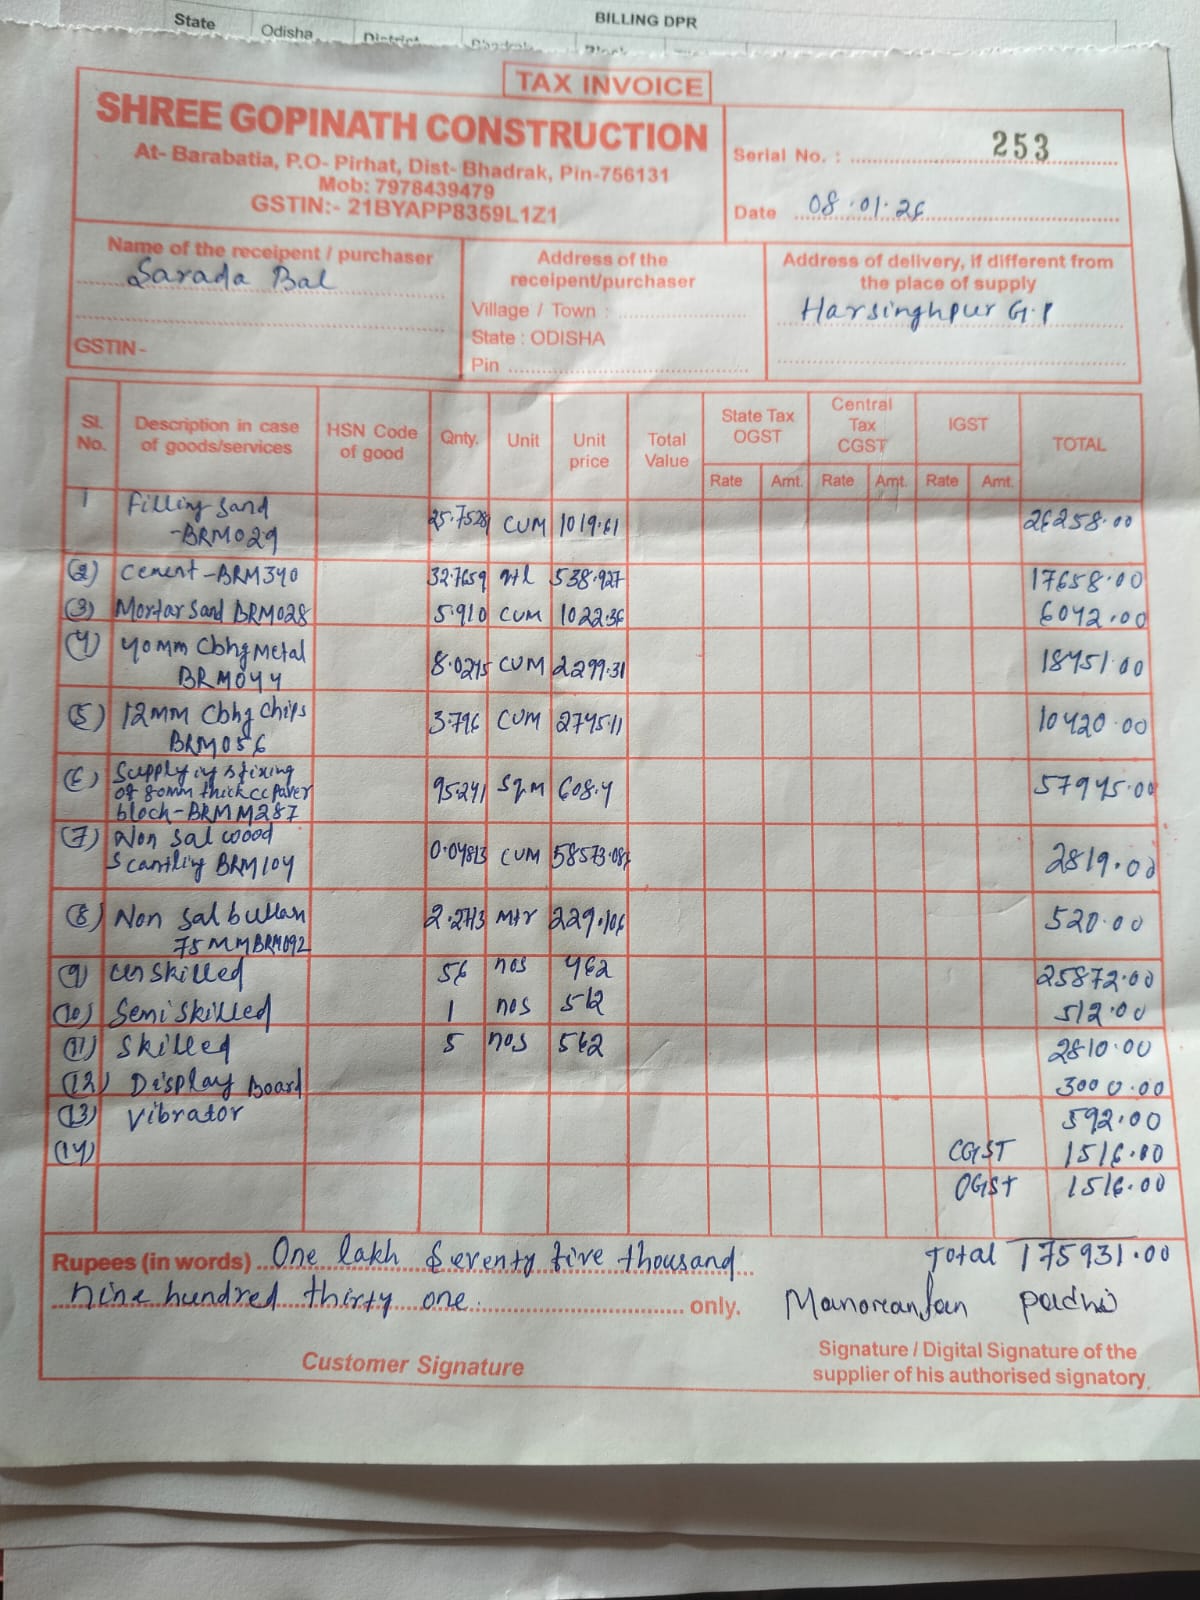 State
Odisha
BILLING DPR
TAX INVOICE
SHREE GOPINATH CONSTRUCTION
At- Barabatia, P.O- Pirhat, Dist- Bhadrak, Pin-756131
Mob: 7978439479
GSTIN:- 21BYAPP8359L1Z1
Serial No. : 253
Date 08.01.26
Name of the receipent / purchaser
Sarada Bal
GSTIN-
Address of the
receipent/purchaser
Village / Town :
State : ODISHA
Pin
Address of delivery, if different from
the place of supply
Harsinghpur G.P
Sl. No. Description in case of goods/services HSN Code of good Qnty. Unit Unit price Total Value State Tax OGST Central Tax CGST IGST TOTAL
Rate Amt. Rate Amt. Rate Amt.
1 Filling Sand 25.7528 CUM 1019.61 26258.00
-BRM029
(2) Cement-BRM340 32.7659 qtl 538.927 17658.00
(3) Mortar Sand BRM028 5.910 CUM 1022.36 6042.00
(4) 40mm Cbhg Metal 8.0245 CUM 2299.31 18451.00
BRM044
(5) 12mm Cbhg chips 3.796 CUM 2745.11 10420.00
BRM056
(6) Supplying & fixing
of 80mm thick cc Paver 95.241 Sqm 608.4 57945.00
block-BRMM287
(7) Non Sal wood
Scantling BRM104 0.04813 CUM 58573.08 2819.00
(8) Non Sal bullah 2.2713 mtr 229.106 520.00
75MMBRM092
(9) Unskilled 56 nos 462 25872.00
(10) Semi Skilled 1 nos 512 512.00
(11) Skilled 5 nos 562 2810.00
(12) Display Board 3000.00
(13) Vibrator 592.00
(14) CGST 1516.00
OGST 1516.00
Rupees (in words) One lakh Seventy five thousand Total 175931.00
nine hundred thirty one. only. Manoranjan Padhi
Customer Signature
Signature / Digital Signature of the
supplier of his authorised signatory.